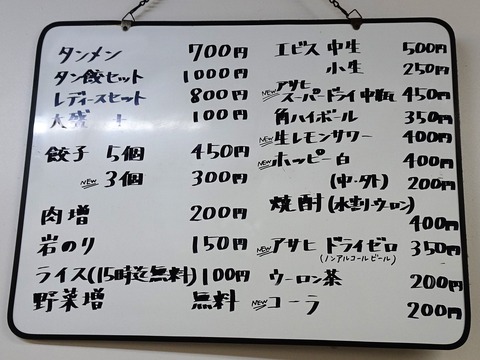 タンメン 700円
タン餃セット 1000円
レディースセット 800円
大盛 + 100円
餃子 5個 450円
NEW 3個 300円
肉増 200円
岩のり 150円
ライス(15時迄無料) 100円
野菜増 無料
エビス 中生 500円
小生 250円
NEW アサヒ
スーパードライ 中瓶 450
角ハイボール 350円
NEW 生レモンサワー 400円
NEW ホッピー白 400円
(中・外) 200円
焼酎(水割・ウーロン)
400円
NEW アサヒ ドライゼロ 350円
(ノンアルコールビール)
ウーロン茶 200円
NEW コーラ 200円